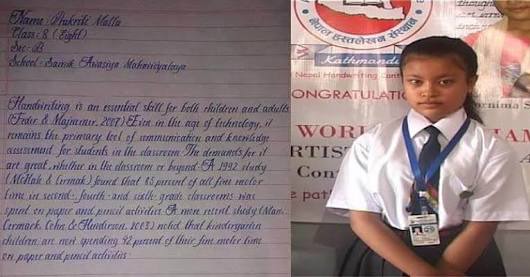 Name : Prakriti Malla
Class - 8 (Eight)
Sec - B
School - Sainik Awasiya Mahavidyalaya
Handwriting is an essential skill for both children and adults
(Feder & Majnemer, 2007) Even in the age of technology, it
remains the primary tool of communication and knowledge
assessment for students in the classroom. The demands for it
are great, whether in the classroom or beyond. A 1992 study
(McHale & Cermak) found that 85 percent of all fine motor
time in second-, fourth- and sixth-grade classrooms was
spent on paper and pencil activities. A more recent study (Marr,
Cermack, Cohn & Henderson, 2003) noted that kindergarten
children are now spending 42 percent of their fine motor time
on paper and pencil activities.
नेपाल हस्तलेखन संस्थान
Kathmandu
Nepal Handwriting
ONGRATULATI
WOR
ARTIST
Con
e pat
AM